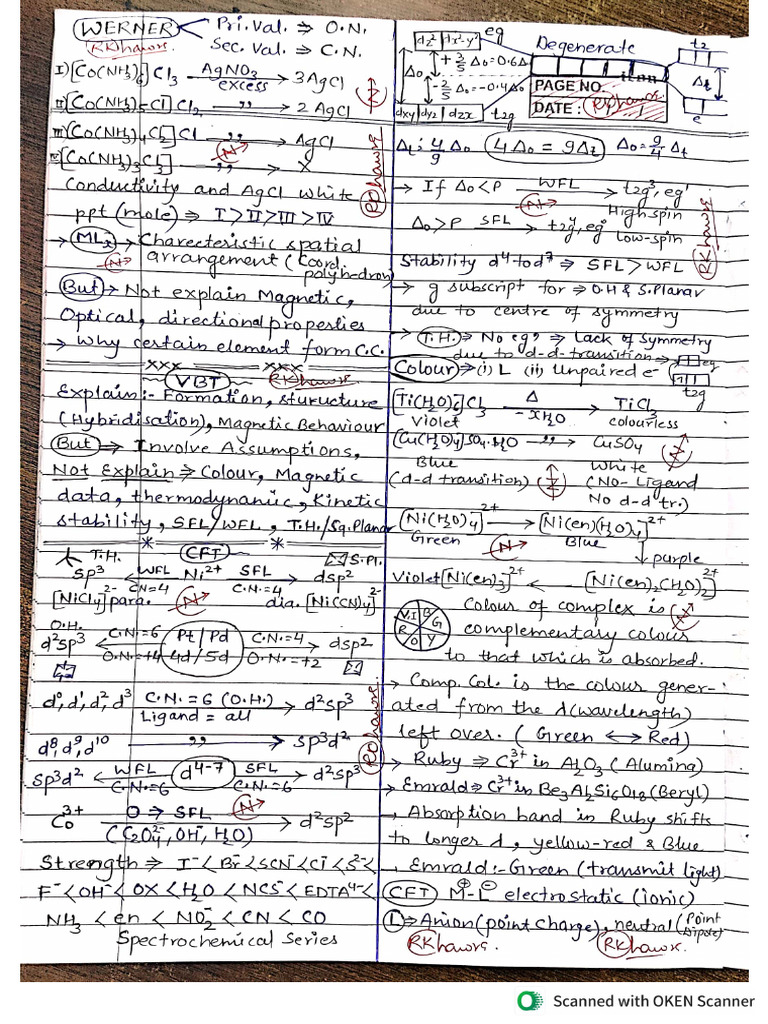 WERNER Pri. Val. ⇒ O.N.
RKhawrs. Sec. Val. ⇒ C.N.
I) [Co(NH3)6]Cl3 AgNO3 excess → 3AgCl
II) [Co(NH3)5Cl]Cl2 —〃→ 2 AgCl
III) [Co(NH3)4Cl2]Cl —〃→ AgCl
IV) [Co(NH3)3Cl3] —〃→ X
Conductivity and AgCl white
ppt (mole) ⇒ I > II > III > IV
→ MLx → Charecteristic spatial
arrangement (Coord. polyhedron)
But → Not explain Magnetic,
Optical, directional properties
→ Why certain element form C.C.
xxx xxx
VBT RKhawrs
Explain:- Formation, sturucture
(Hybridisation), Magnetic Behaviour
But ⇒ Involve Assumptions,
Not Explain ⇒ Colour, Magnetic
data, thermodynamic, Kinetic
stability, SFL/WFL, T.H./Sq.Planar
* CFT *
T.H. S.Pl.
sp3 ← WFL C.N=4 Ni2+ SFL C.N.=4 → dsp2
[NiCl4]2- para. dia. [Ni(CN)4]2-
O.H.
d2sp3 ← C.N.=6 O.N.=+4 Pt/Pd 4d/5d C.N.=4 O.N.=+2 → dsp2
d0, d1, d2, d3 C.N.=6 (O.H.) Ligand = all → d2sp3
d8, d9, d10 —〃→ sp3d2
sp3d2 ← WFL C.N.=6 d4-7 SFL C.N.=6 → d2sp3
Co3+ O ⇒ SFL (C2O4 2-, OH-, H2O) → d2sp2
Strength ⇒ I- < Br- < SCN- < Cl- < S2- <
F- < OH- < OX < H2O < NCS- < EDTA4- <
NH3 < en < NO2- < CN < CO
Spectrochemical Series
dz2 dx2-y2 eg Degenerate t2
Δo + 3/5 Δo = 0.6Δ
-2/5 Δo = -0.4Δo Δt
PAGE NO.
DATE : RKhawrs
dxy dyz dzx t2g e
Δt = 4/9 Δo 4Δo = 9Δt Δo = 9/4 Δt
→ If Δo < P WFL → t2g3, eg1
High spin
Δo > P SFL → t2g4, eg0
Low-spin
Stability d4 to d7 ⇒ SFL > WFL
→ g subscript for ⇒ O.H & S.Planar
due to centre of symmetry
→ T.H. ⇒ No eg, ⇒ Lack of Symmetry
due to d-d-transition ⇒ eg
Colour ⇒ (i) L (ii) Unpaired e- t2g
[Ti(H2O)6]Cl3 Δ -xH2O → TiCl3
violet colourless
[Cu(H2O)4]SO4.H2O —〃→ CuSO4
Blue White
(d-d transition) (No- Ligand
No d-d tr.)
[Ni(H2O)4]2+ → [Ni(en)(H2O)4]2+
Green Blue
↓ purple
Violet [Ni(en)3]2+ ← [Ni(en)2(H2O)2]2+
V I B G Y O R
Colour of complex is
complementary colour
to that which is absorbed.
→ Comp. Col. is the colour gener-
ated from the λ (wavelength)
left over. (Green ↔ Red)
→ Ruby ⇒ Cr3+ in Al2O3 (Alumina)
→ Emrald ⇒ Cr3+ in Be3Al2Si6O18 (Beryl)
→ Absorption band in Ruby shifts
to longer λ, yellow-red & Blue
→ Emrald:- Green (transmit light)
CFT M⊕-L⊖ electrostatic (ionic)
L → Anion (point charge), neutral (Point Dipole)
RKhawrs. RKhawrs.
Scanned with OKEN Scanner